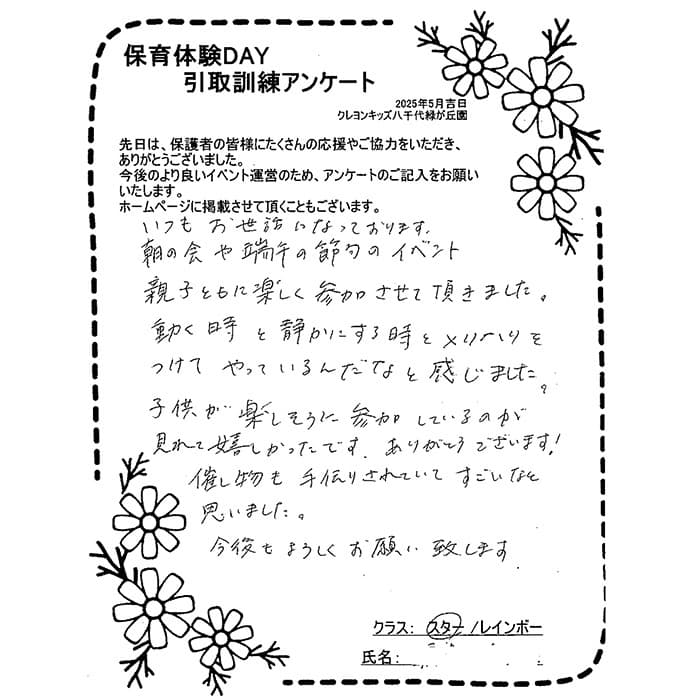 保育体験DAY
引取訓練アンケート
2025年5月吉日
クレヨンキッズ八千代緑が丘園
先日は、保護者の皆様にたくさんの応援やご協力をいただき、
ありがとうございました。
今後のより良いイベント運営のため、アンケートのご記入をお願い
いたします。
ホームページに掲載させて頂くこともございます。
いつも お世話になっております。
朝の会や端午の節句のイベント
親子ともに楽しく参加させて頂きました。
動く時と静かにする時とメリハリを
つけて やっているんだなと感じました。
子供が楽しそうに参加しているのが
見れて嬉しかったです。ありがとうございます!
催し物も手作りされていて すごいなと
思いました。
今後もよろしくお願い致します
クラス: スター /レインボー
氏名: